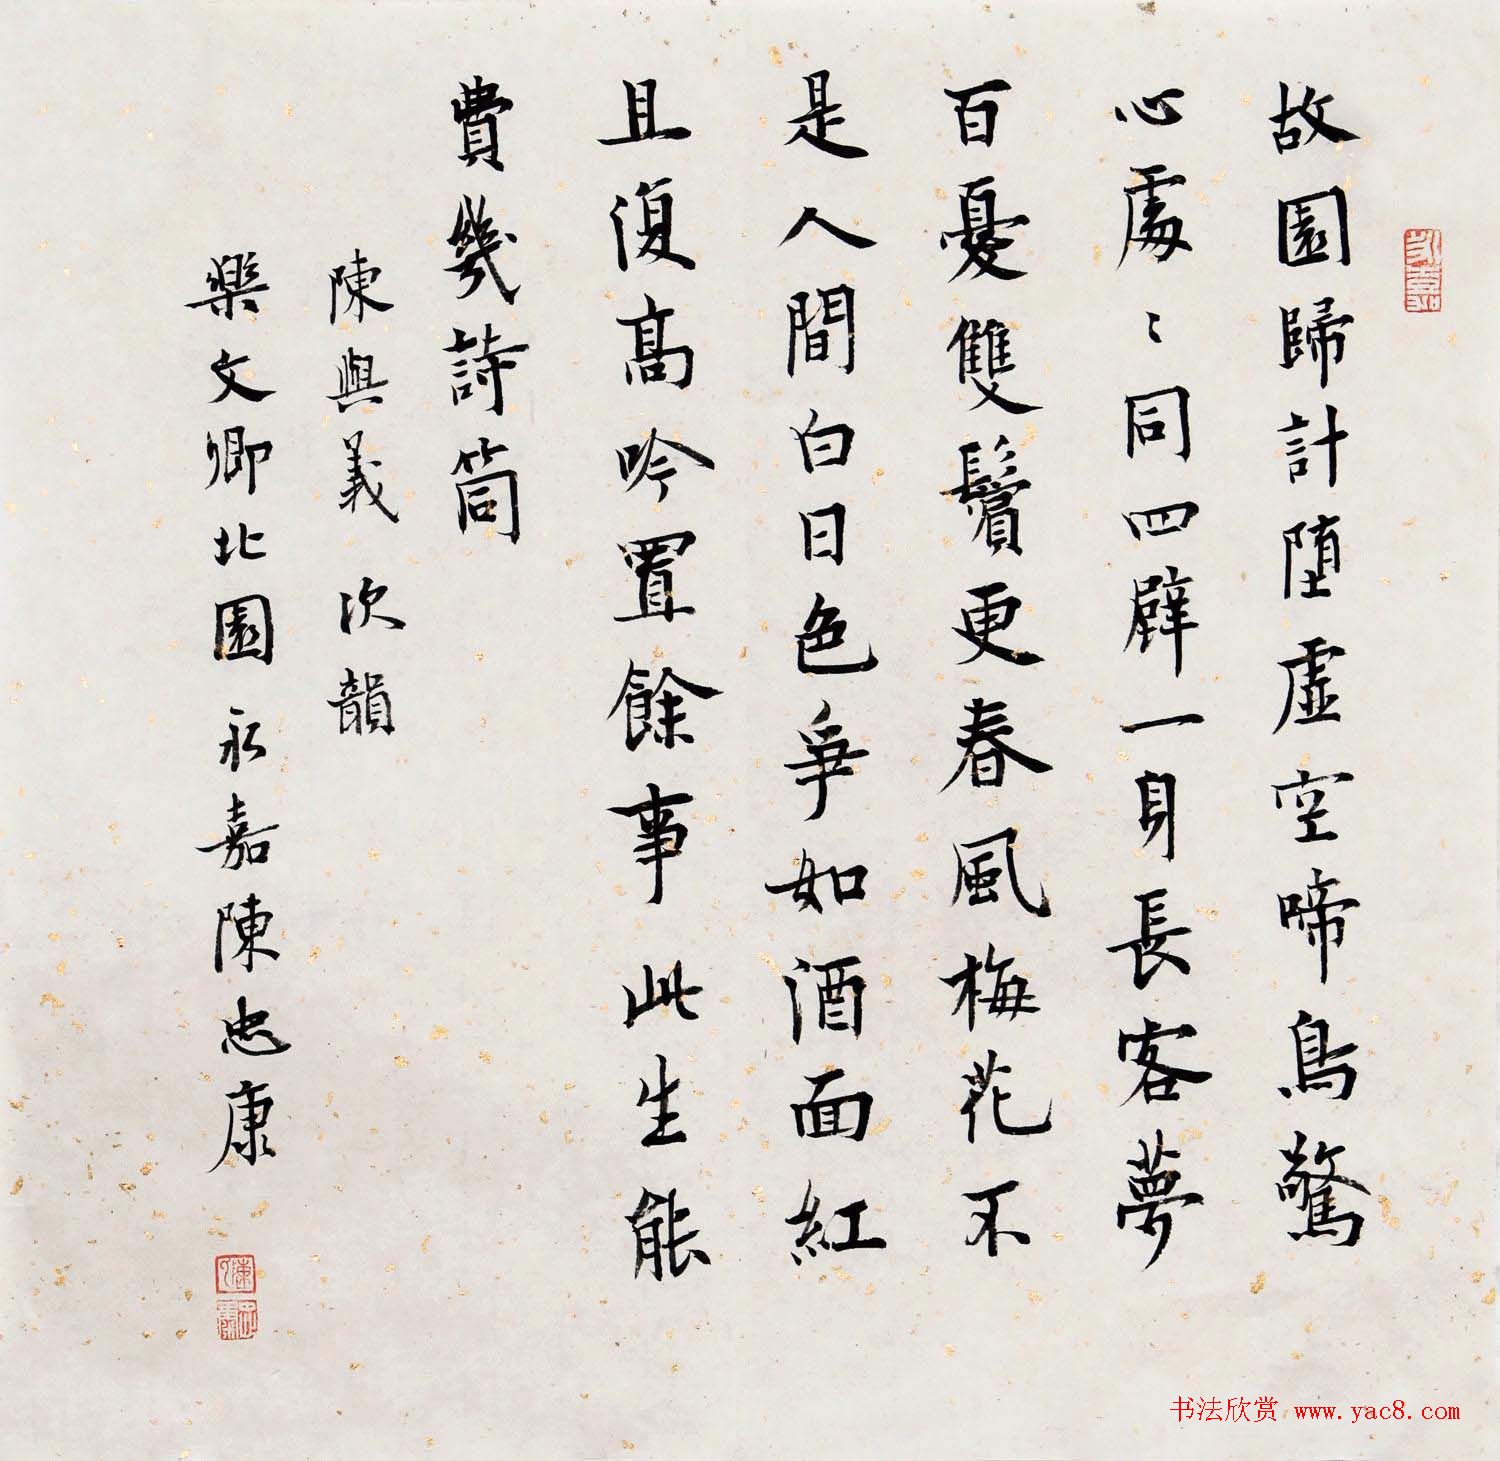 故園歸計墮虛空啼鳥驚
心處〻同四壁一身長客夢
百憂雙鬢更春風梅花不
是人間白日色爭如酒面紅
且復高吟置餘事此生能
費幾詩筒
陳與義 次韻
樂文卿北園 永嘉陳忠康
永嘉
书法欣赏 www.yac8.com